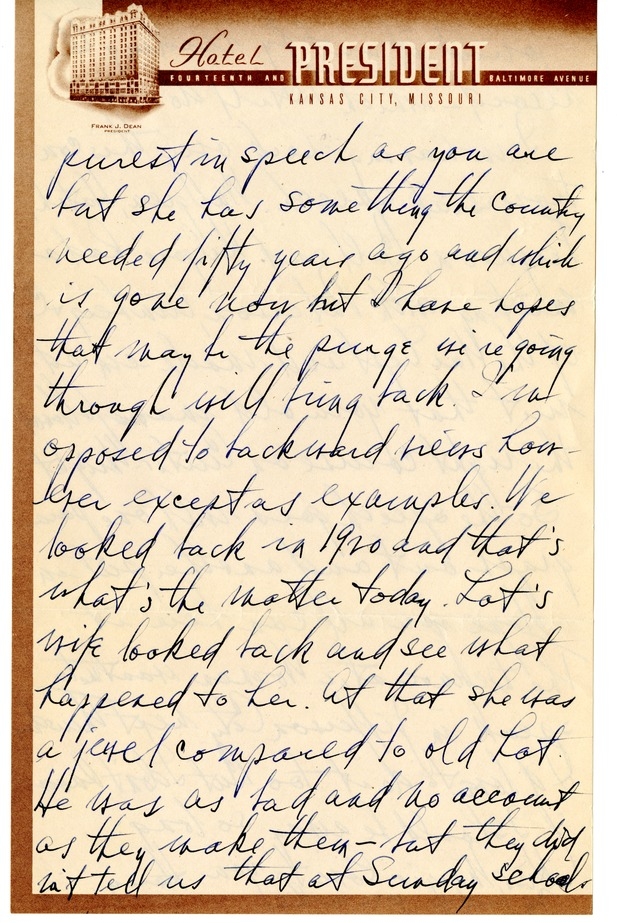 Hotel PRESIDENT
FOURTEENTH AND BALTIMORE AVENUE
KANSAS CITY, MISSOURI
FRANK J. DEAN
PRESIDENT
purest in speech as you are
but she has something the country
needed fifty years ago and which
is gone now but I have hopes
that maybe the purge we're going
through will bring back. I'm
opposed to backward views how-
ever except as examples. We
looked back in 1920 and that's
what's the matter today. Lot's
wife looked back and see what
happened to her. At that she was
a jewel compared to old Lot.
He was as bad and no account
as they make them – but they did
n't tell us that at Sunday school.